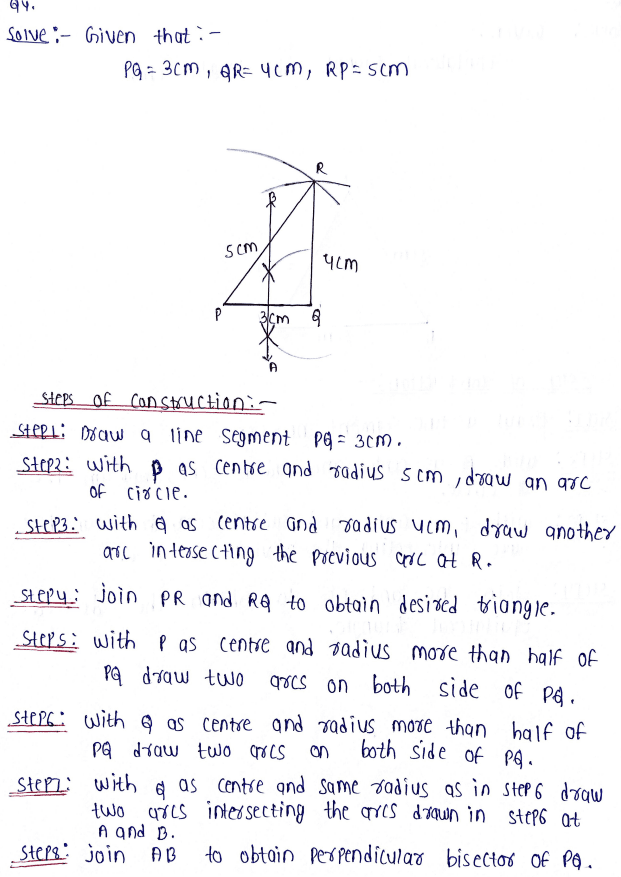 Q4.
Solve :- Given that :-
PQ = 3cm, QR= 4cm, RP= 5cm
R
B
5cm
4cm
P
3cm
Q
A
Steps of Construction:-
Step1: Draw a line segment PQ = 3cm.
Step2: With P as centre and radius 5cm, draw an arc
of circle.
Step3: with Q as centre and radius 4cm, draw another
arc intersecting the previous arc at R.
Step4: join PR and RQ to obtain desired triangle.
Step5: with P as centre and radius more than half of
PQ draw two arcs on both side of PQ.
Step6: With Q as centre and radius more than half of
PQ draw two arcs on both side of PQ.
Step7: with Q as centre and same radius as in step6 draw
two arcs intersecting the arcs drawn in step6 at
A and B.
Step8: join AB to obtain perpendicular bisector of PQ.